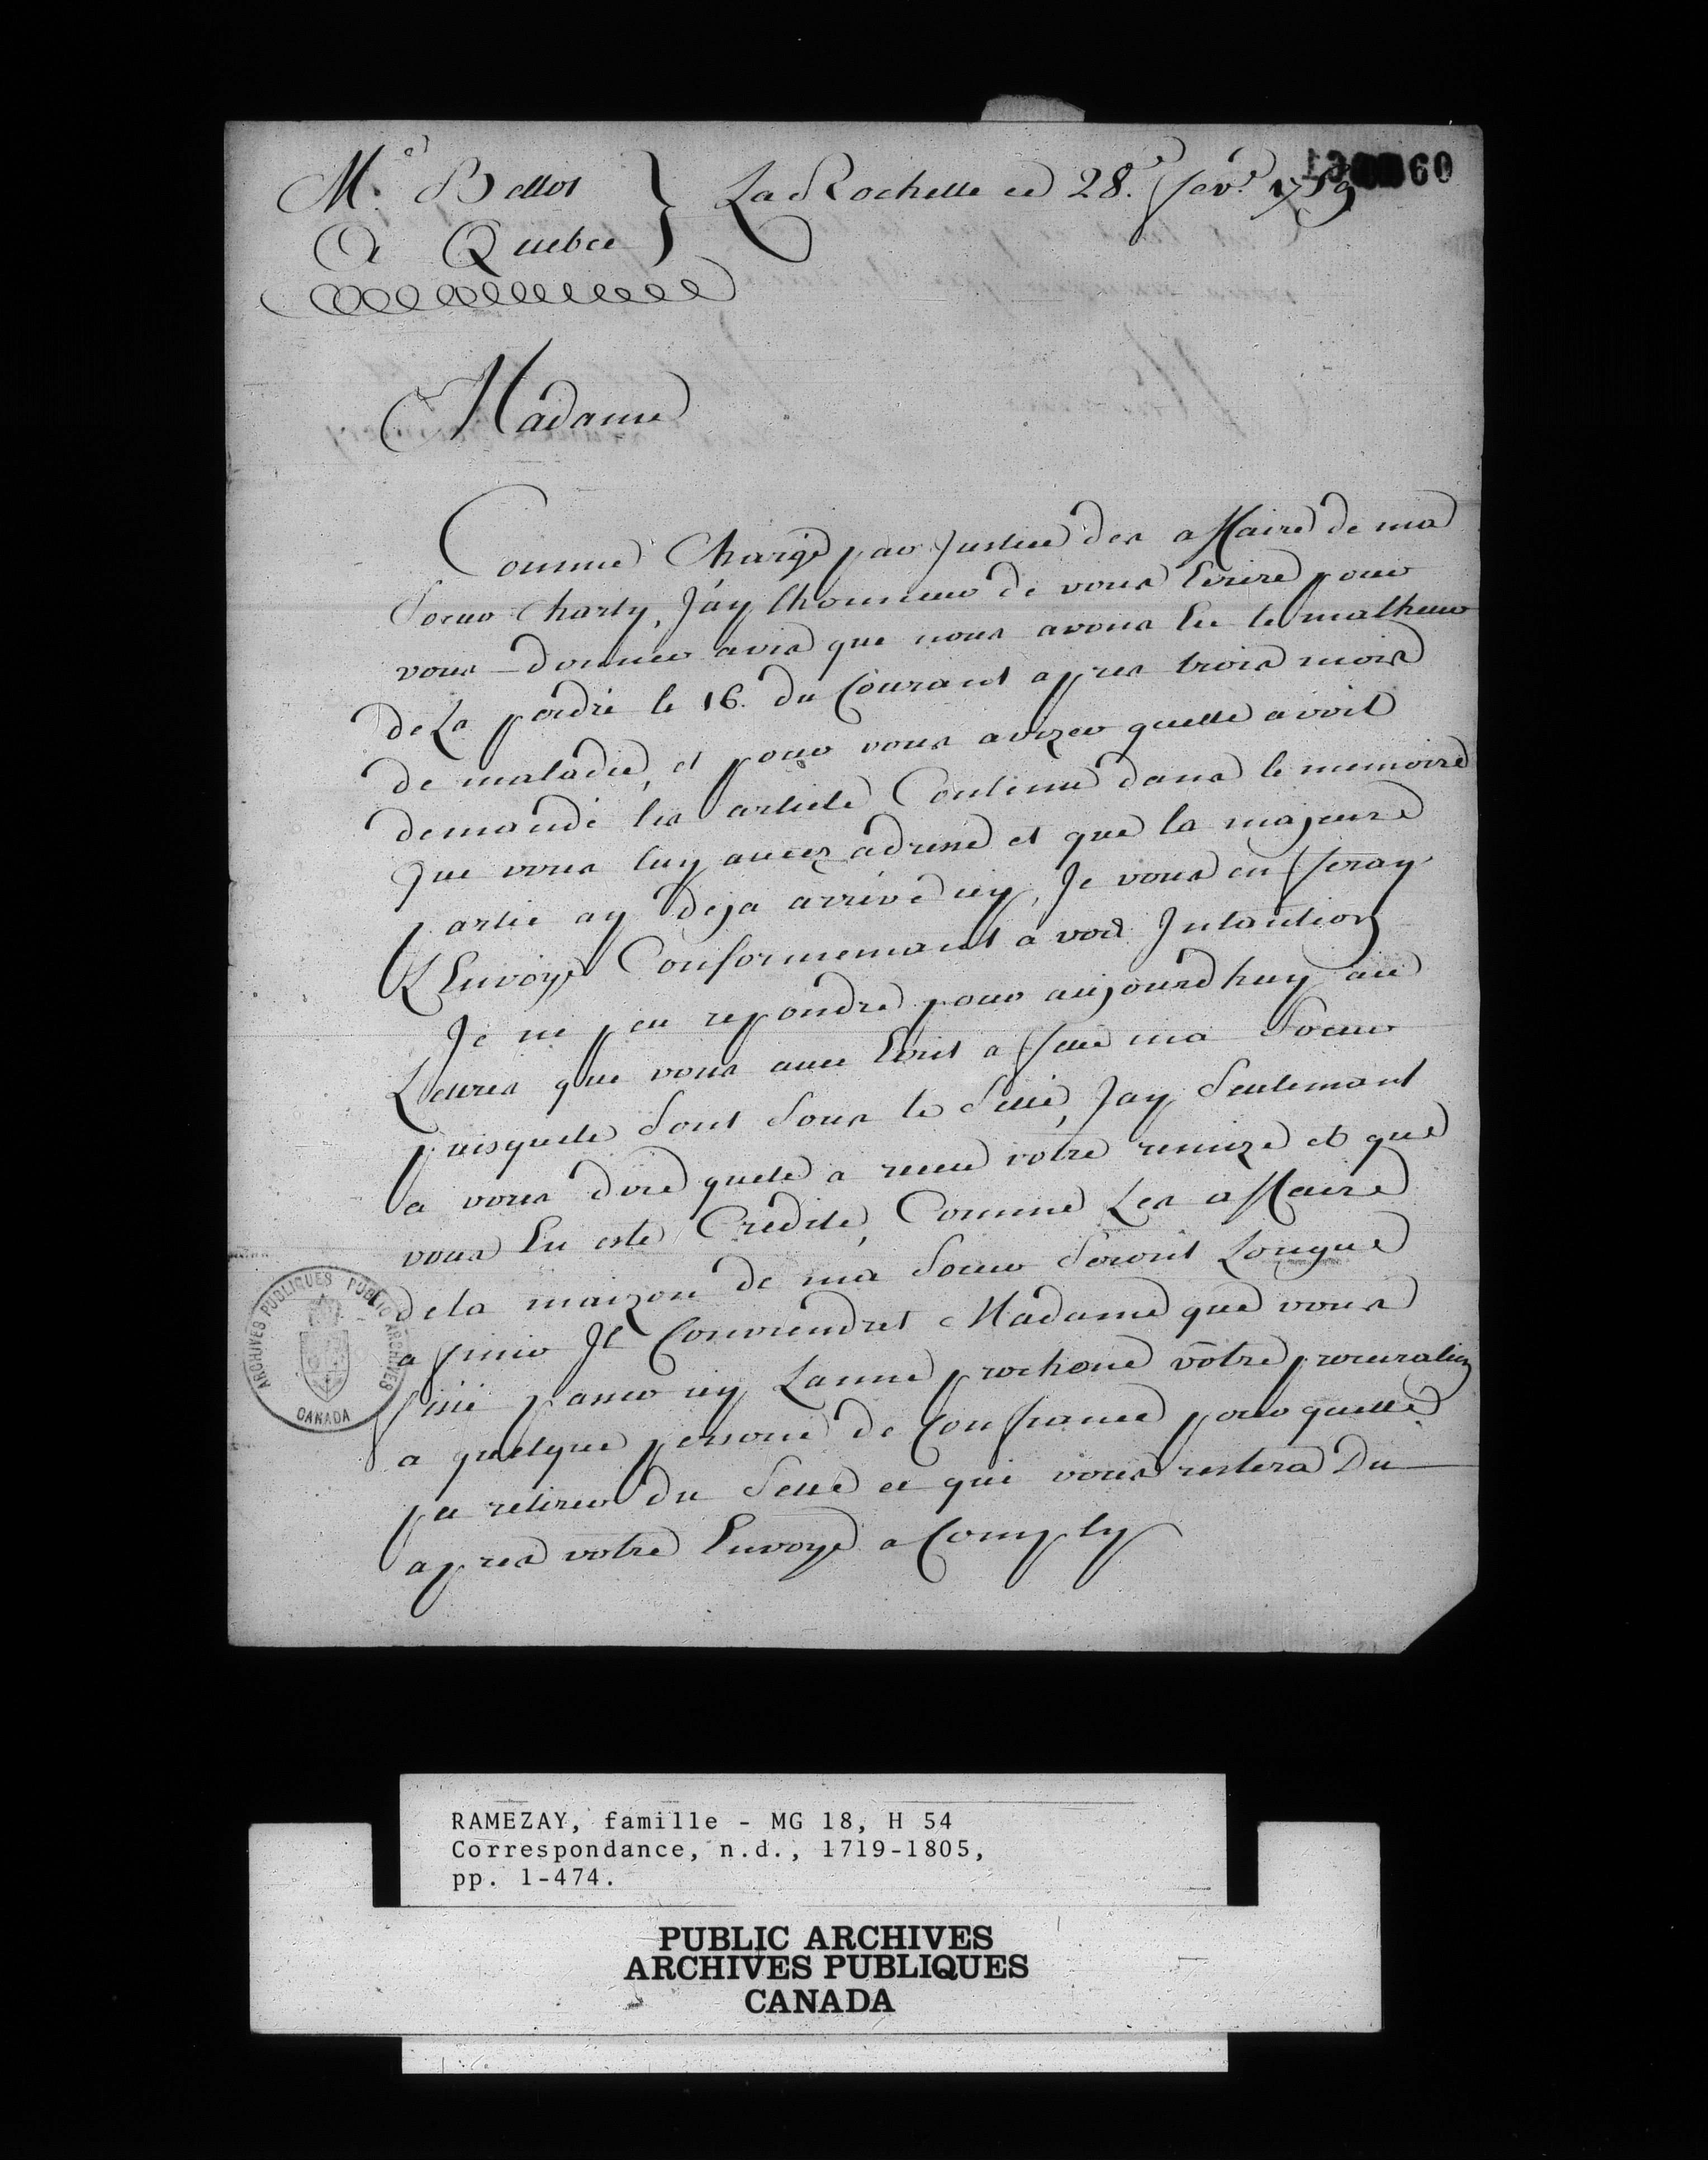 Me. Bellot } La Rochelle ce 28e. fevr. 1759
A Quebec
60
Madame
Comme Chargé par Justice des affaire de ma
Soeur Charly, J'ay lhonneur de vous Ecrire pour
vous donner avis que nous avons Eu le malheur
de La perdre le 16. du Courant apres trois mois
de maladie, et pour vous avizer quelle avoit
demandé les article Contenu dans le memoire
que vous luy avez adressé et que la majeure
partie ay deja arrivé icy, Je vous en feray
L'Envoye Conformement a vos Intantion
Je ne peu repondre pour aujourdhuy au
Letres que vous avee Ecrit a feue ma Soeur
puisquele Sont Sous le Selle, Jay Seulemant
a vous dire quele a receu votre remize et que
vous En ete Credite, Comme Les affaire
de la maizon de ma Soeur Seront Longue
a finir Il Conviendret Madame que vous
fisié passer icy Lanne prochene vôtre procuration
a quelque persone de Confiance pour quelle
pu retirer du Selle ce qui vous restera Du
apres votre Envoye a Comply
ARCHIVES PUBLIQUES PUBLIC ARCHIVES
CANADA
RAMEZAY, famille - MG 18, H 54
Correspondance, n.d., 1719-1805,
pp. 1-474.
PUBLIC ARCHIVES
ARCHIVES PUBLIQUES
CANADA